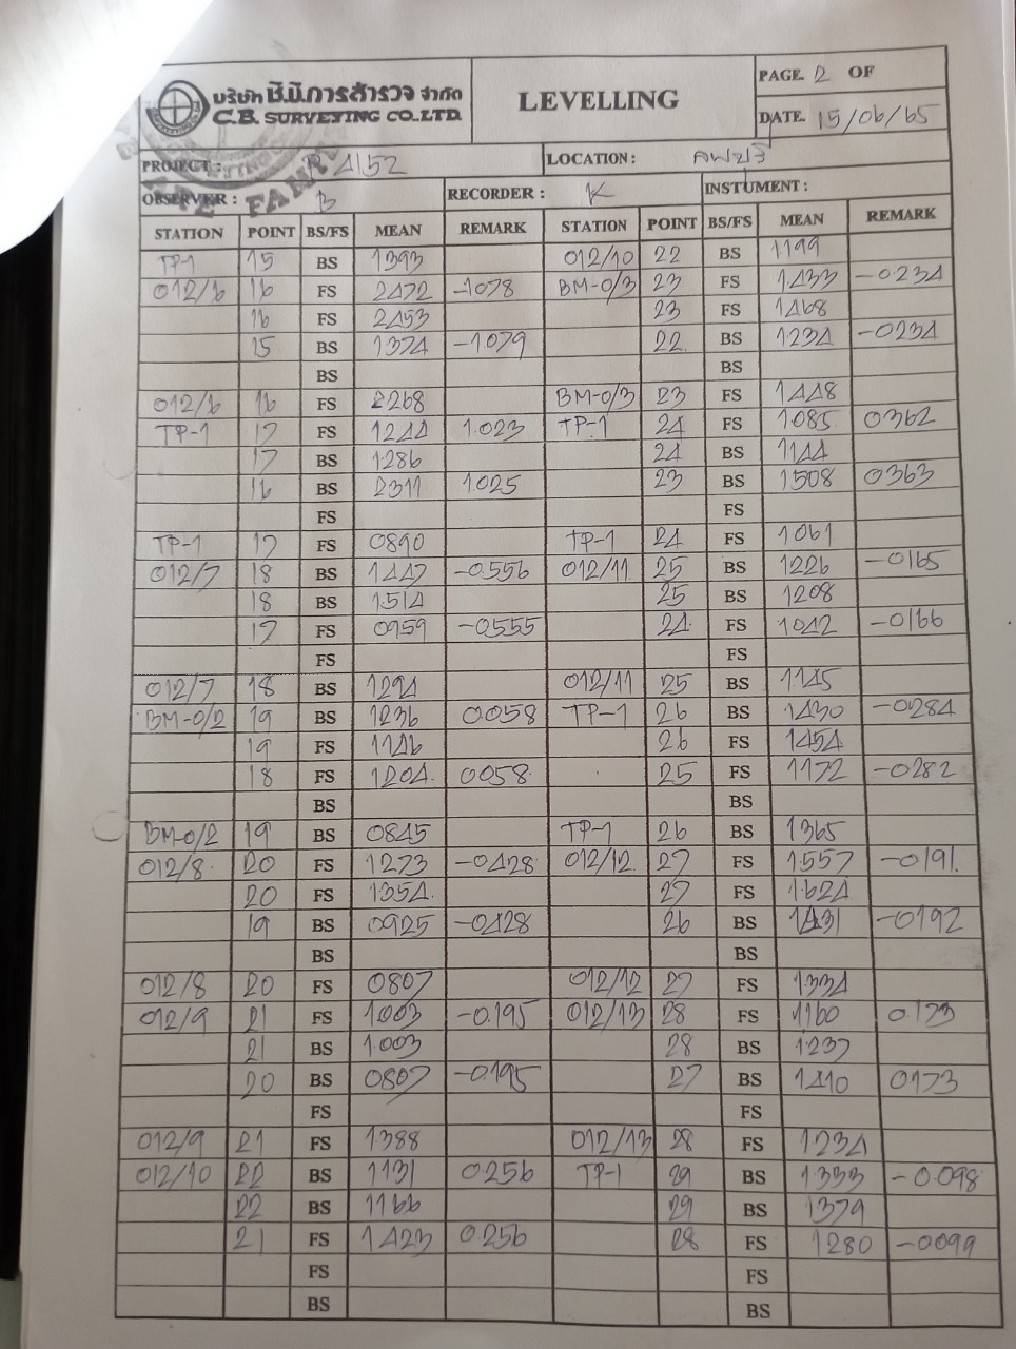 บริษัท ซี.บี.การสำรวจ จำกัด
C.B. SURVEYING CO.,LTD.
LEVELLING
PAGE. 2 OF
DATE. 15/06/65
PROJECT : R 4152 LOCATION : ลพบุรี
OBSERVER : B RECORDER : K INSTUMENT :
STATION POINT BS/FS MEAN REMARK STATION POINT BS/FS MEAN REMARK
TP-1 15 BS 1393 012/10 22 BS 1199
012/6 16 FS 2472 -1078 BM-0/3 23 FS 1.433 -0234
16 FS 2453 23 FS 1468
15 BS 1374 -1079 22 BS 1234 -0234
BS BS
012/6 16 FS 2268 BM-0/3 23 FS 1448
TP-1 17 FS 1244 1.023 TP-1 24 FS 1.085 0362
17 BS 1286 24 BS 1144
16 BS 2311 1.025 23 BS 1508 0363
FS FS
TP-1 17 FS 0890 TP-1 24 FS 1061
012/7 18 BS 1447 -0556 012/11 25 BS 1226 -0165
18 BS 1514 25 BS 1208
17 FS 0959 -0555 24 FS 1042 -0166
FS FS
012/7 18 BS 1294 012/11 25 BS 1145
BM-0/2 19 BS 1236 0058 TP-1 26 BS 1430 -0284
19 FS 1146 26 FS 1454
18 FS 1204 0058 25 FS 1172 -0282
BS BS
BM-0/2 19 BS 0845 TP-1 26 BS 1365
012/8 20 FS 1273 -0428 012/12 27 FS 1557 -0191
20 FS 1354 27 FS 1624
19 BS 0925 -0428 26 BS 1431 -0192
BS BS
012/8 20 FS 0807 012/12 27 FS 1334
012/9 21 FS 1.003 -0.195 012/13 28 FS 1160 0.173
21 BS 1.003 28 BS 1237
20 BS 0807 -0.195 27 BS 1410 0173
FS FS
012/9 21 FS 1.388 012/13 28 FS 1234
012/10 22 BS 1131 0.256 TP-1 29 BS 1333 -0.098
22 BS 1166 29 BS 1379
21 FS 1423 0.256 28 FS 1280 -0099
FS FS
BS BS